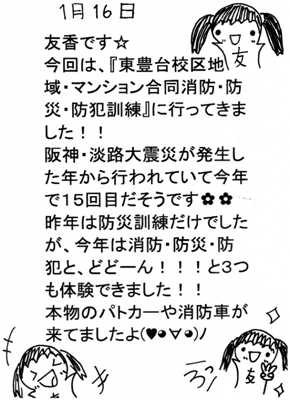 1月16日
友香です☆
今回は、『東豊台校区地
域・マンション合同消防・防
災・防犯訓練』に行ってきま
した！！
阪神・淡路大震災が発生し
た年から行われていて今年
で15回目だそうです✿✿
昨年は防災訓練だけでした
が、今年は消防・防災・防
犯と、どどーん！！！と3つ
も体験できました！！
本物のパトカーや消防車が
来てましたよ(♥◕∀◕)ノ
友
友